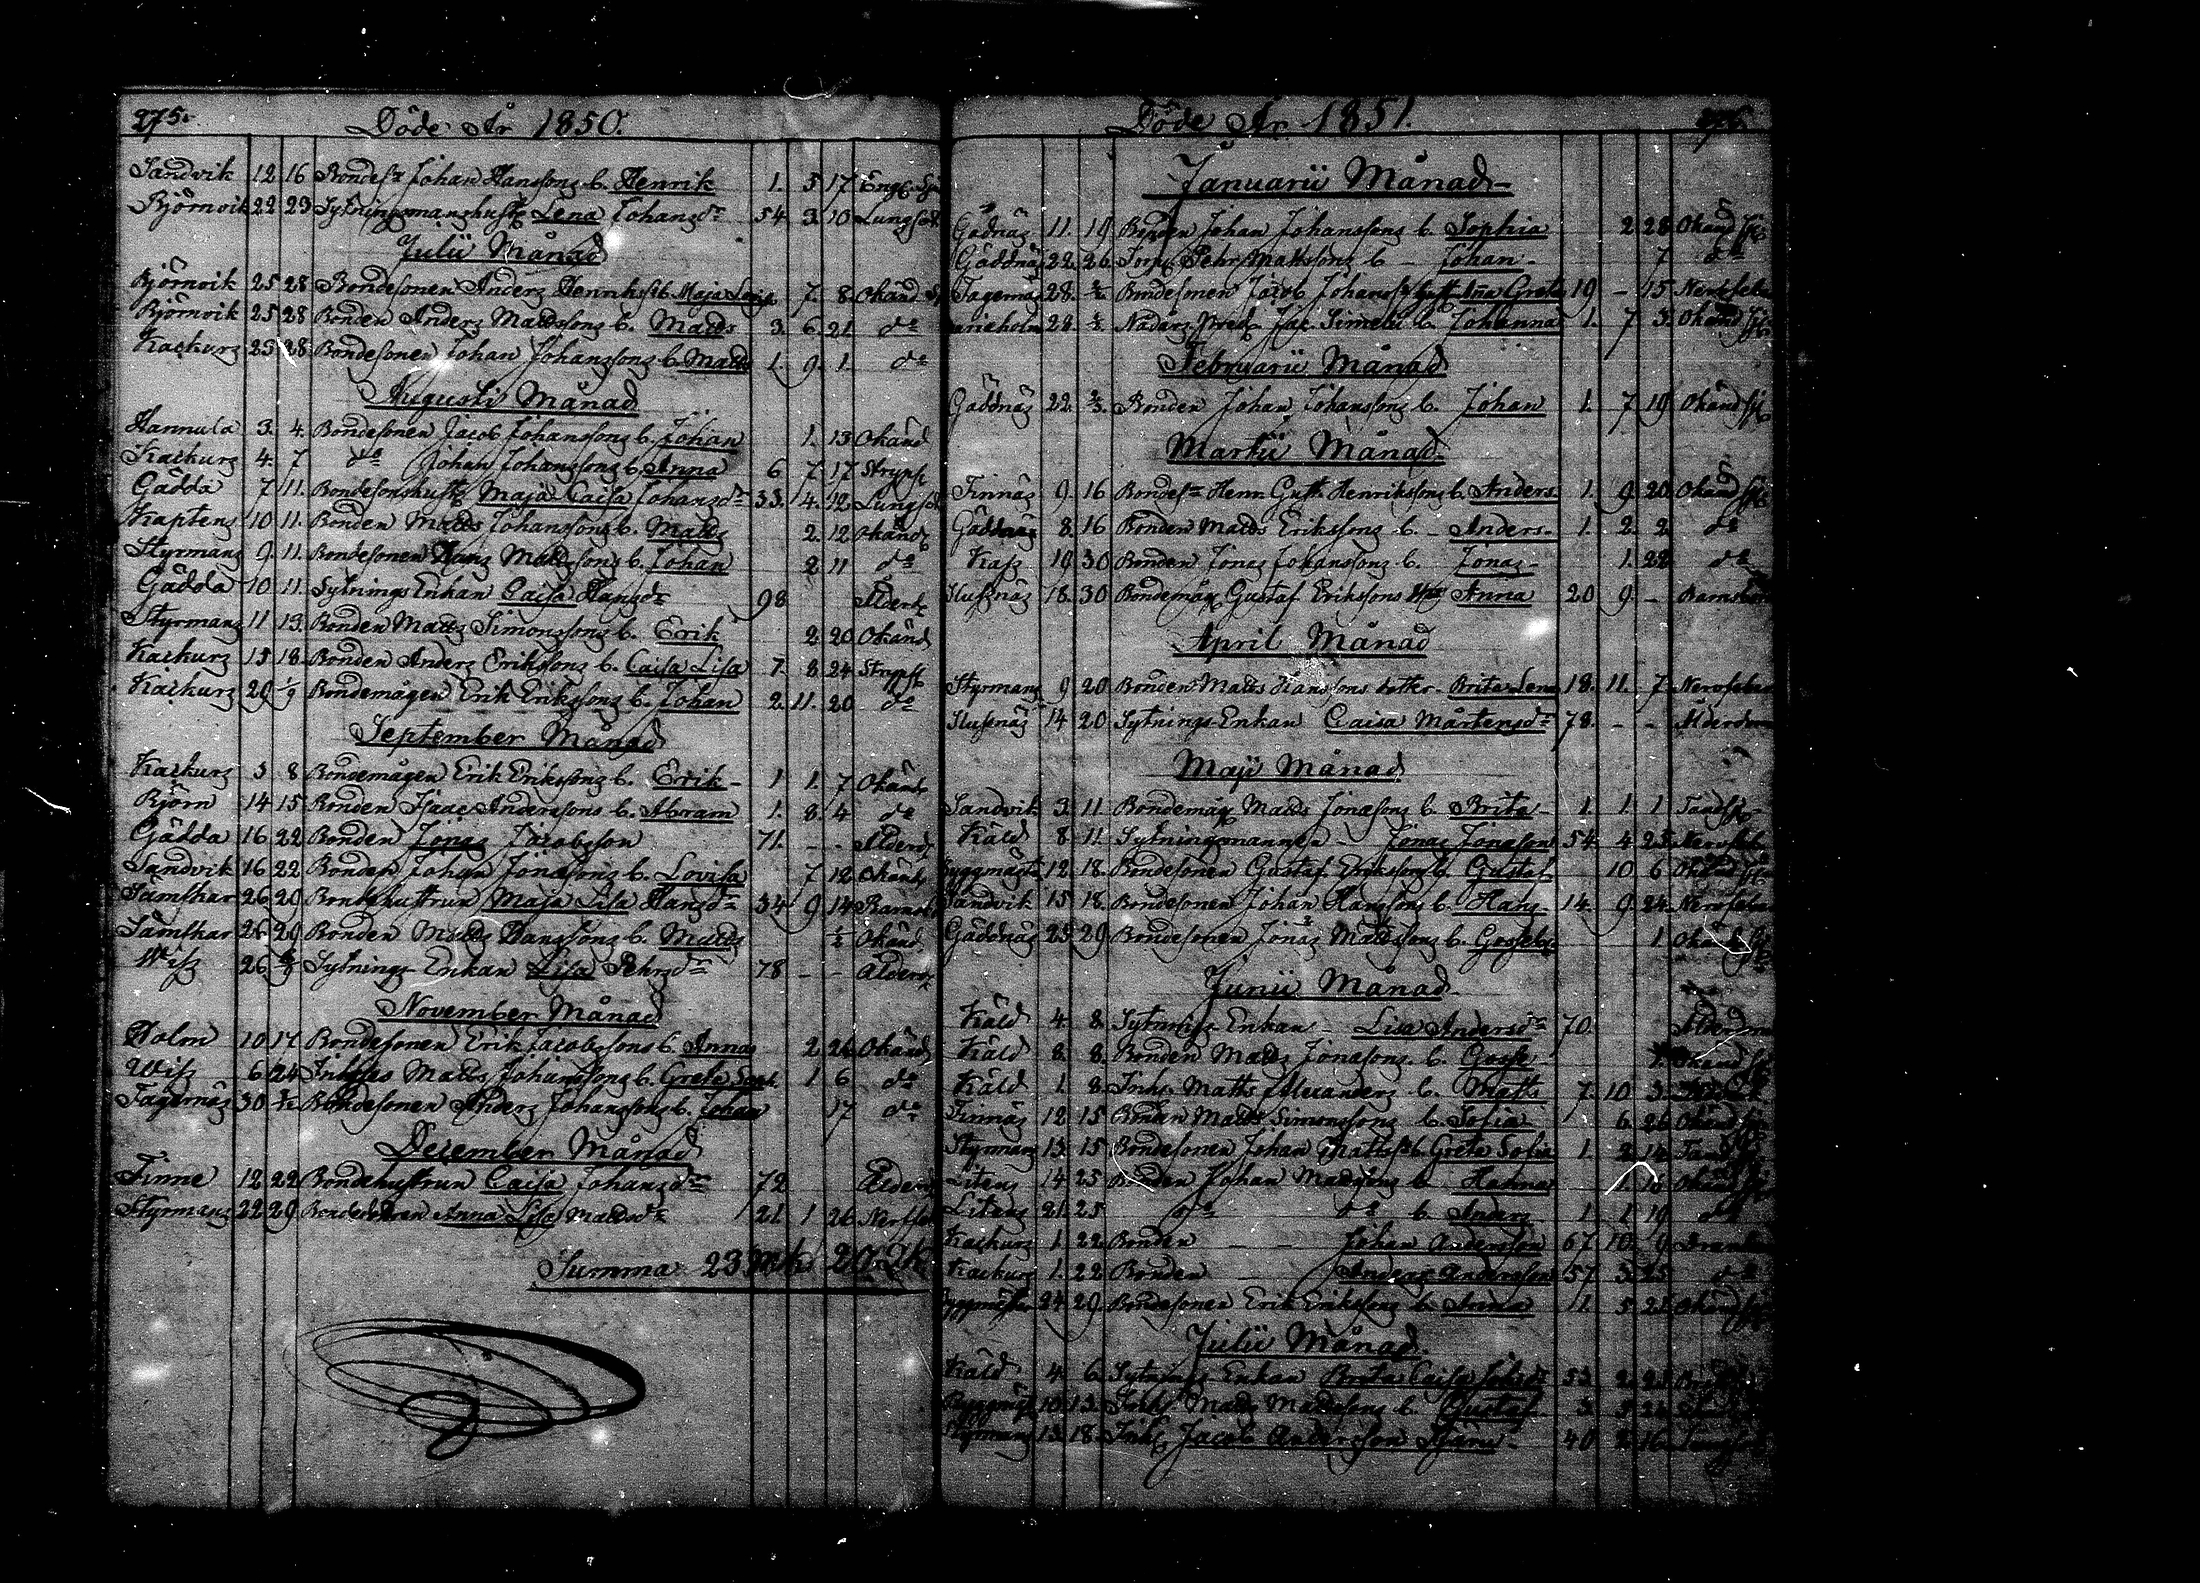 275.
Döde År 1850.
Sandvik 12 16 Bondes:n Johan Hanssons b. Henrik 1. 5 17
Björnvik 22 23 Sytningsmanshustr. Lena Johansd:r 54 3 10 Lungsot
Julii Månad
Björnvik 25 28 Bondesonen Anders Henrikss b. Maja Lovisa 7. 8. Okänd
Björnvik 25 28 Bonden Anders Mattssons b. Matts 3. 6. 21 d:o
Kackurs 23 28 Bondesonen Johan Johanssons b. Matts 1. 9. 1. d:o
Augusti Månad
Hannula 3. 4. Bondesonen Jacob Johanssons b. Johan 1. 13 Okänd
Kackurs 4. 7 d:o Johan Johanssons b. Anna 6 7. 17 Strypsj
Gädda 7 11. Bondesonshustr Maja Caisa Johansd:r 33. 4. 12 Lungsot
Kaptens 10 11. Bonden Matts Johanssons b. Matts 2. 12 Okänd
Styrmans 9. 11. Bondesonen Hans Mattssons b. Johan 2 11 d:o
Gädda 10 11. Sytnings Enkan Caisa Hansd:r 98 Ålderd
Styrmans 11 13. Bonden Matts Simonssons b. Erik 2. 20 Okänd
Kackurs 15 18 Bonden Anders Erikssons b. Caisa Lisa 7. 8 24 Strypsj
Kackurs 29 1/9 Bondemågen Erik Erikssons b. Johan 2. 11. 20 d:o
September Månad
Kackurs 5 8 Bondemågen Erik Erikssons b. Erik - 1 1. 7 Okänd
Björn 14 15 Bonden Isaac Anderssons b. Abram 1. 8. 4 d:o
Gädda 16 22 Bonden Jonas Jacobsson 71. - - Ålderd
Sandvik 16 22 Bonden Johan Jonassons b. Lovisa 7 12 Okänd
Sämskar 26 29 Bondehustrun Maja Lisa Hansd:r 34 9 14 Barnsbd
Sämskar 26 29 Bonden Matts Hanssons b. Matts 1/2 Okänd
Wiss 26 Sytnings Enkan Lisa Pehrsd:r 78 - - Ålderd
November Månad
Holm 10 17 Bondesonen Erik Jacobssons b. Anna 2 26 Okänd
Wiss 6 24 Inhyses Matts Johanssons b. Greta 1 6 d:o
Fagernäs 30 Bondesonen Anders Johanssons b. Johan 17 d:o
December Månad
Finne 12 22 Bondehustrun Caisa Johansd:r 72 Ålderd
Styrmans 22 29 Anna Lisa Mattsd:r 21 1 26
Summa 23 Mk 20 Qk
Döde År 1851.
Januarii Månad
Gädnäs 11. 19 Bonden Johan Johanssons b. Sophia 2. 28 Okänd sjk
Gäddnäs 22. 26. Torp. Pehr Mattssons b - Johan - 7 d:o
Fagernäs 28. Bondesonen Jacob Johanss Greta 19 - 15 Nervfeber
28. Jac. Simelii b. Johanna 1. 7 3. Okänd sjk
Februarii Månad
Gäddnäs 22. 2/3. Bonden Johan Johanssons b. Johan 1. 7 19 Okänd sjk
Martii Månad
Finnäs 9. 16 Bondes:n Henr. Gust. Henrikssons b. Anders 1. 9 20 Okänd sjk
Gäddnäs 8. 16 Bonden Matts Erikssons b. - Anders - 1. 2. 2 d:o
Kass 19 30 Bonden Jonas Johanssons b. Jonas - 1. 22 d:o
Slussnäs 18. 30 Bondemåg. Gustaf Erikssons Anna 20 9. - Barnsbd
April Månad
Styrmans 9 20 Bonden Matts Hanssons dotter Brita Lena 18. 11. 7 Nervfeber
Slussnäs 14 20 Sytnings-Enkan Caisa Mårtensd:r 78. - - Ålderdom
Maji Månad
Sandvik 3. 11. Bondemåg. Matts Jonassons b. Brita 1. 1. 1
Käld 8 11. Sytningsmannen - Jonas Jonasson 54. 4 23 Nervfeb
Byggmäst 12 18. Bondesonen Gustaf Erikssons b. Gustaf 10 6 Okänd sjk
Sandvik 15 18. Bondesonen Johan Hanssons b. Hans 14. 9 24. Nervfeber
Gäddnäs 25 29 Bondesonen Jonas Mattssons b. 1. Okänd
Junii Månad
Käld 4. 8. Sytnings Enkan - Lisa Andersd:r 70. Ålderdom
Käld 8. 8. Bonden Matts Jonassons b. Okänd
Käld 1. 8. Inhs. Matts Alexanders b. Matts 7. 10 3.
Finnäs 12 15 Bonden Matts Simonssons b. Sofia 1 6. 26 Okänd
Styrmans 13. 15 Bondesonen Johan Mattss b. Greta Sofia 1. 2 14
Litens 14 25 Bonden Johan Mattssons b. Hanna Okänd
Litens 21. 25 d:o d:o b Anders 1. 1 19 d:o
Kackurs 1. 22. Bonden - - Johan Andersson 67. 10. 9
Kackurs 1. 22 Bonden Anders Andersson 57 3. 25 d:o
24. 29. Bondesonen Erik Erikssons b. Anna 1. 5
Julii Månad
Käld 4. 6. Sytnings Enkan Brita Caisa 53 2.
10. 13. Inhs. Matts Mattssons b. Gustaf 3.
Styrmans 13. 18. Inhs. Jacob Andersson 40 2 16